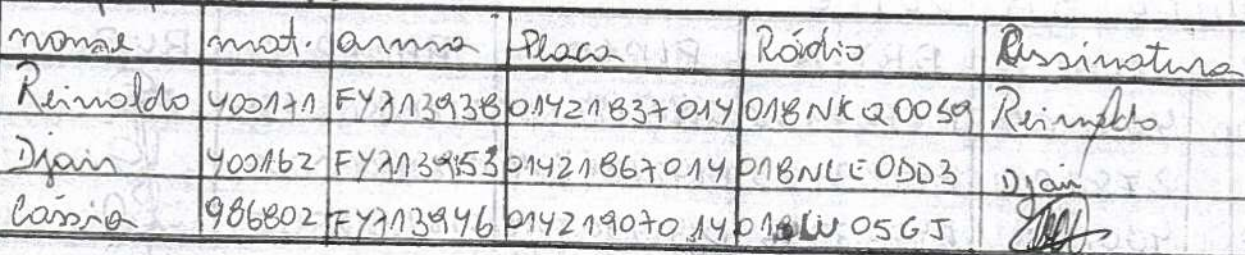 nome mat. arma Placa Rádio Assinatura
Reinaldo 400171 FYA13938 01421837014 018NKQ0059 Reinaldo
Djair 400162 FYA13953 01421867014 018NLE0DD3 Djair
Cássia 986802 FYA13946 01421907014